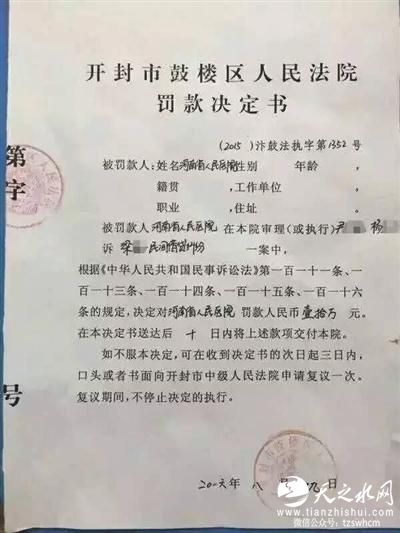 开封市鼓楼区人民法院
罚款决定书
(2015)汴鼓法执字第1352号
第
字
号
被罚款人:姓名河南省人民医院性别 年龄,
籍贯 ,工作单位
职业 ,住址
被罚款人河南省人民医院在本院审理(或执行)尹 杨
诉梁 民间借贷纠纷 一案中,
根据《中华人民共和国民事诉讼法》第一百一十一条、一
百一十三条、一百一十四条、一百一十五条、一百一十六
条的规定,决定对河南省人民医院罚款人民币壹拾万元。
在本决定书送达后十日内将上述款项交付本院。
如不服本决定,可在收到决定书的次日起三日内,
口头或者书面向开封市中级人民法院申请复议一次。
复议期间,不停止决定的执行。
二〇一六年八月 九日
天之水网
www.tianzhishui.com
微信公众号:tzswhcm